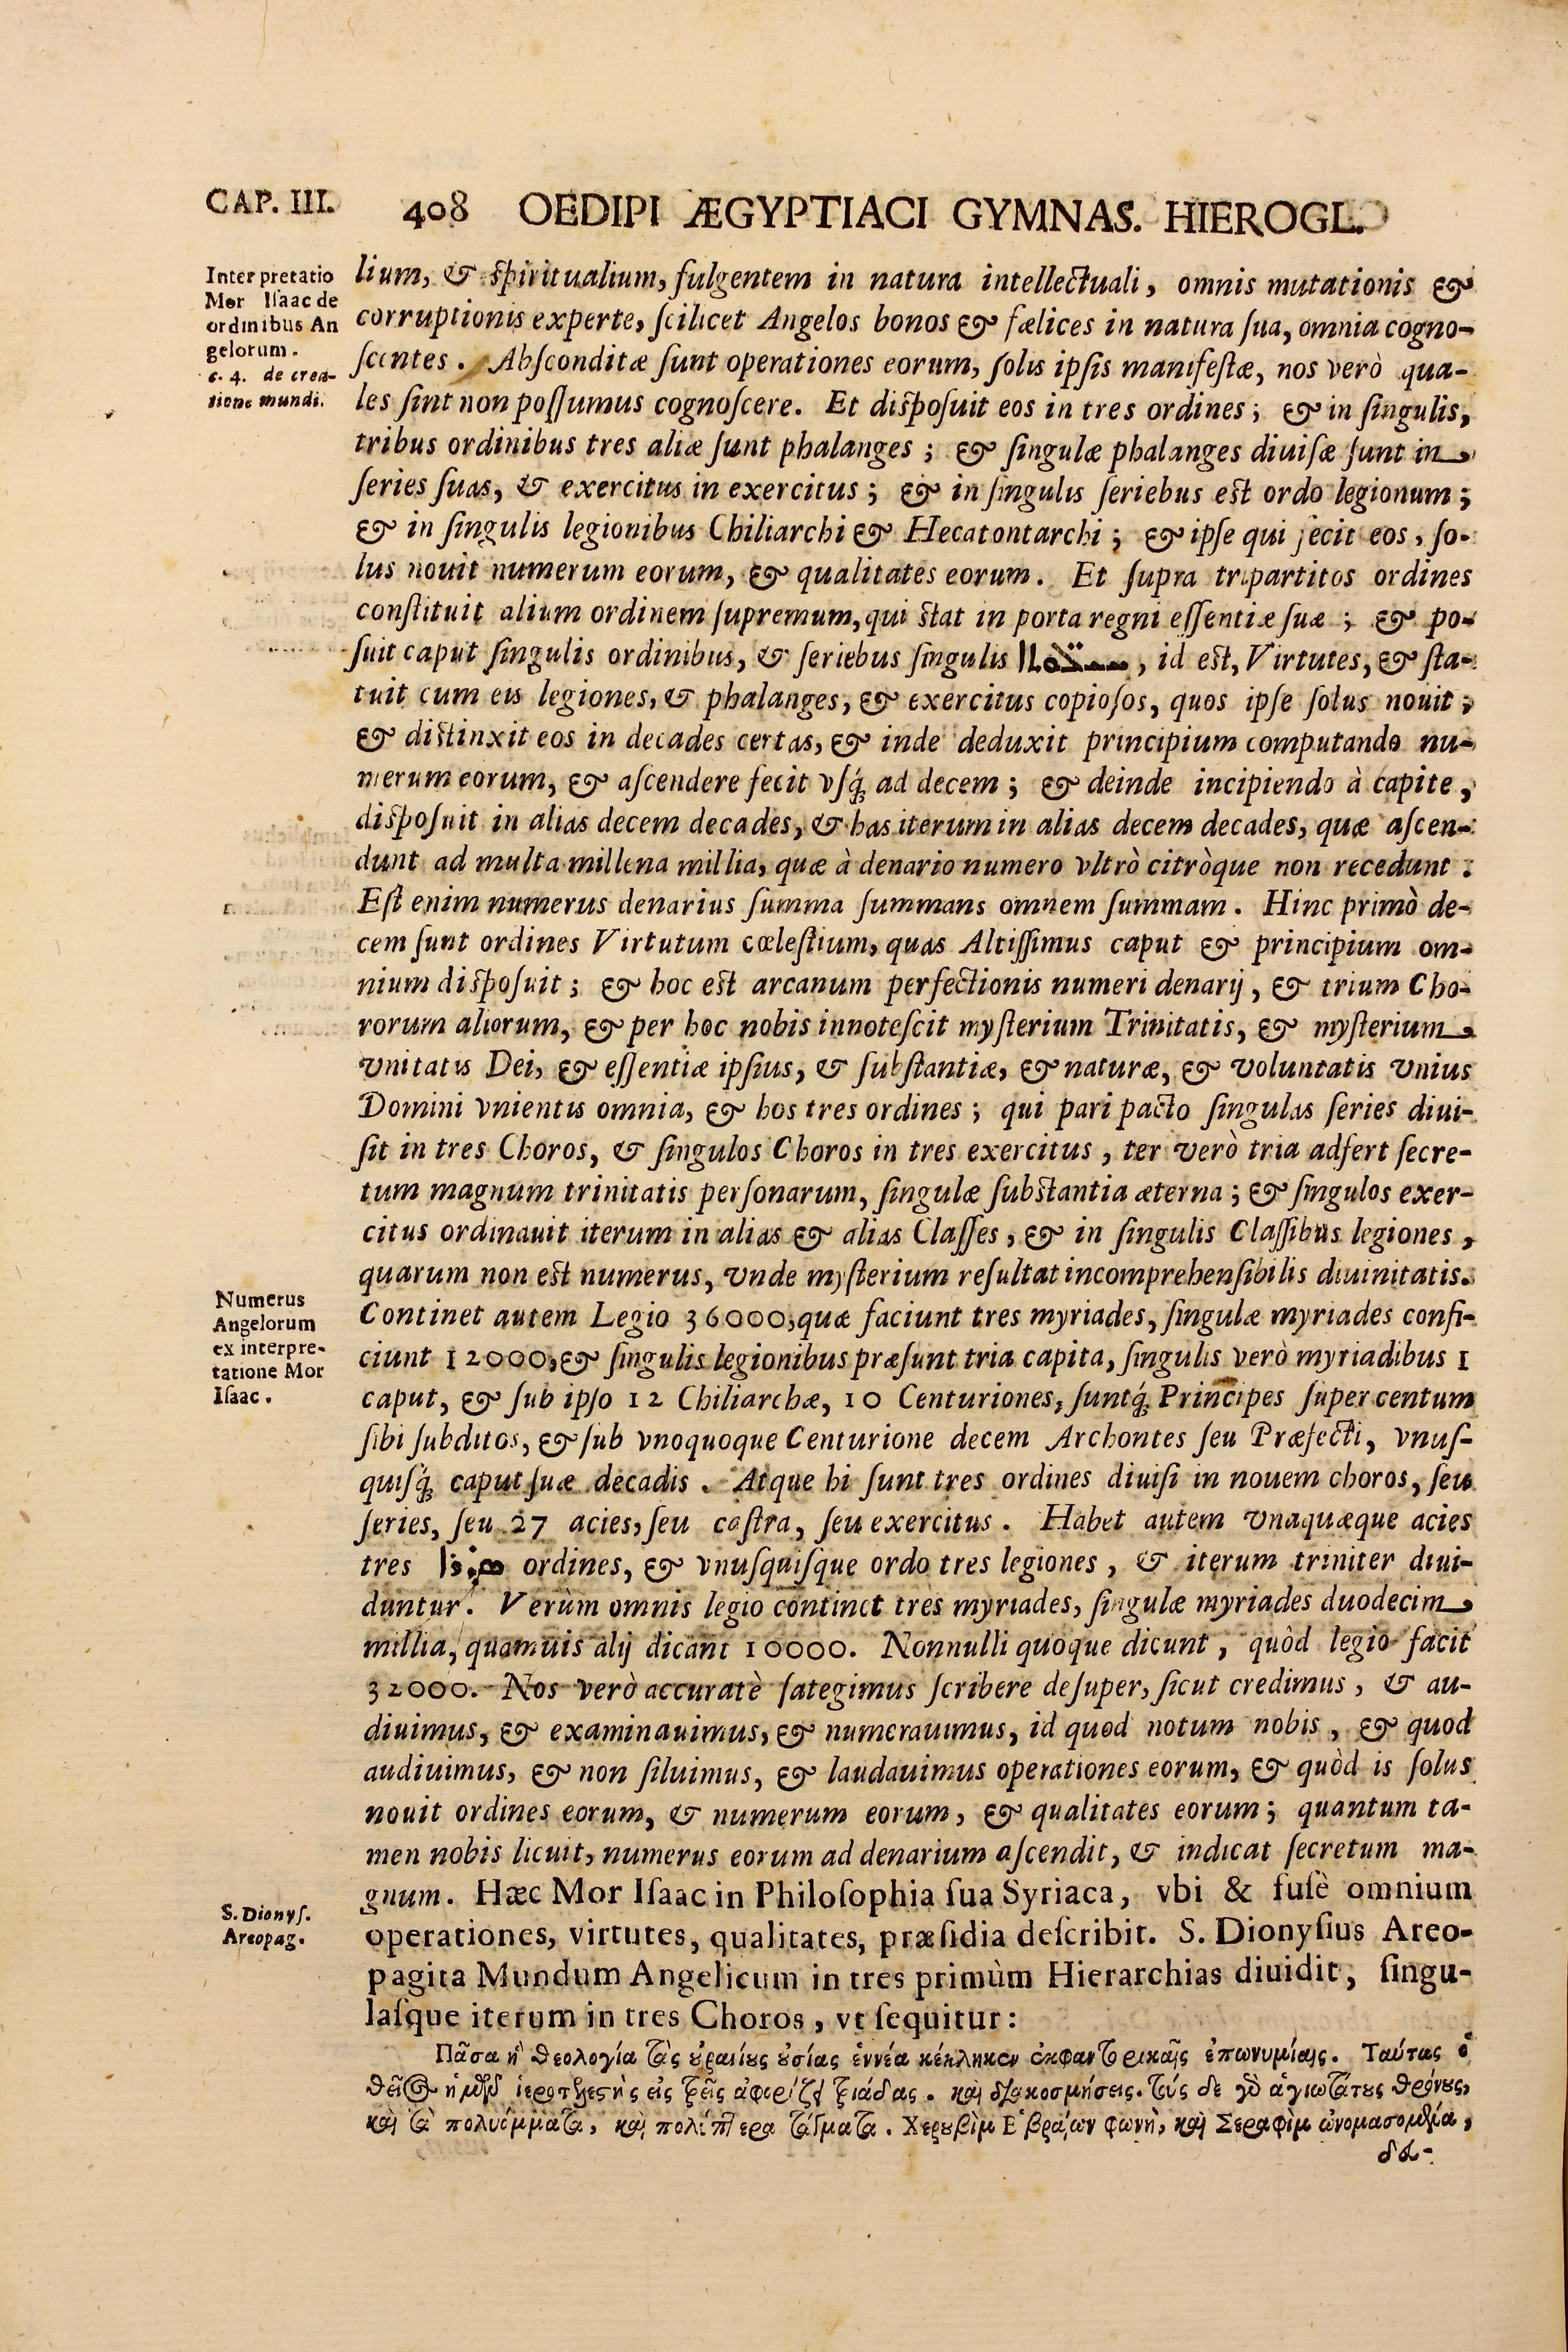 CAP. III. 408 OEDIPI ÆGYPTIACI GYMNAS. HIEROGL.
Interpretatio
Mor Isaac de
ordinibus An
gelorum.
c. 4. de crea-
tione mundi.
lium, & spiritualium, fulgentem in natura intellectuali, omnis mutationis &
corruptionis experte, scilicet Angelos bonos & fælices in natura sua, omnia cogno-
scentes. Absconditæ sunt operationes eorum, solis ipsis manifestæ, nos verò qua-
les sint non possumus cognoscere. Et disposuit eos in tres ordines; & in singulis,
tribus ordinibus tres aliæ sunt phalanges; & singulæ phalanges diuisæ sunt in
series suas, & exercitus in exercitus; & in singulis seriebus est ordo legionum;
& in singulis legionibus Chiliarchi & Hecatontarchi; & ipse qui fecit eos, so-
lus nouit numerum eorum, & qualitates eorum. Et supra tripartitos ordines
constituit alium ordinem supremum, qui stat in porta regni essentiæ suæ; & po-
suit caput singulis ordinibus, & seriebus singulis, id est, Virtutes, & sta-
tuit cum eis legiones, & phalanges, & exercitus copiosos, quos ipse solus nouit;
& distinxit eos in decades certas, & inde deduxit principium computando nu-
merum eorum, & ascendere fecit vsq́; ad decem; & deinde incipiendo à capite,
disposuit in alias decem decades, & has iterum in alias decem decades, quæ ascen-
dunt ad multa millena millia, quæ à denario numero vltrò citròque non recedunt:
Est enim numerus denarius summa summans omnem summam. Hinc primò de-
cem sunt ordines Virtutum cœlestium, quas Altissimus caput & principium om-
nium disposuit; & hoc est arcanum perfectionis numeri denarij, & trium Cho-
rorum aliorum, & per hoc nobis innotescit mysterium Trinitatis, & mysterium
vnitatis Dei, & essentiæ ipsius, & substantiæ, & naturæ, & voluntatis vnius
Domini vnientis omnia, & hos tres ordines; qui pari pacto singulas series diui-
sit in tres Choros, & singulos Choros in tres exercitus, ter verò tria adfert secre-
tum magnum trinitatis personarum, singulæ substantia æterna; & singulos exer-
citus ordinauit iterum in alias & alias Classes, & in singulis Classibus legiones,
quarum non est numerus, vnde mysterium resultat incomprehensibilis diuinitatis.
Numerus
Angelorum
ex interpre-
tatione Mor
Isaac.
Continet autem Legio 36000, quæ faciunt tres myriades, singulæ myriades confi-
ciunt 12000, & singulis legionibus præsunt tria capita, singulis verò myriadibus 1
caput, & sub ipso 12 Chiliarchæ, 10 Centuriones, suntq́; Principes super centum
sibi subditos, & sub vnoquoque Centurione decem Archontes seu Præfecti, vnus-
quisq́; caput suæ decadis. Atque hi sunt tres ordines diuisi in nouem choros, seu
series, seu 27 acies, seu castra, seu exercitus. Habet autem vnaquæque acies
tres ordines, & vnusquisque ordo tres legiones, & iterum triniter diui-
duntur. Verùm omnis legio continet tres myriades, singulæ myriades duodecim
millia, quamuis alij dicant 10000. Nonnulli quoque dicunt, quòd legio facit
32000. Nos verò accuratè sategimus scribere desuper, sicut credimus, & au-
diuimus, & examinauimus, & numerauimus, id quod notum nobis, & quod
audiuimus, & non siluimus, & laudauimus operationes eorum, & quòd is solus
nouit ordines eorum, & numerum eorum, & qualitates eorum; quantum ta-
men nobis licuit, numerus eorum ad denarium ascendit, & indicat secretum ma-
gnum. Hæc Mor Isaac in Philosophia sua Syriaca, vbi & fusè omnium
S. Dionys.
Areopag.
operationes, virtutes, qualitates, præsidia describit. S. Dionysius Areo-
pagita Mundum Angelicum in tres primùm Hierarchias diuidit, singu-
lasque iterum in tres Choros, vt sequitur:
Πᾶσα ἡ θεολογία τὰς οὐρανίους οὐσίας ἐννέα κέκληκεν ἐκφαντορικαῖς ἐπωνυμίαις. Ταύτας ὁ
θεῖος ἡμῶν ἱεροτελεστὴς εἰς τρεῖς ἀφορίζει τριάδας. καὶ διακοσμήσεις. τούς δε γὸ ἁγιωτάτους θρόνους,
καὶ τὰ πολυόμματα, καὶ πολύπτερα τάγματα. Χερουβὶμ Ἑβραίων φωνῇ, καὶ Σεραφὶμ ὠνομασομένα,
δια-